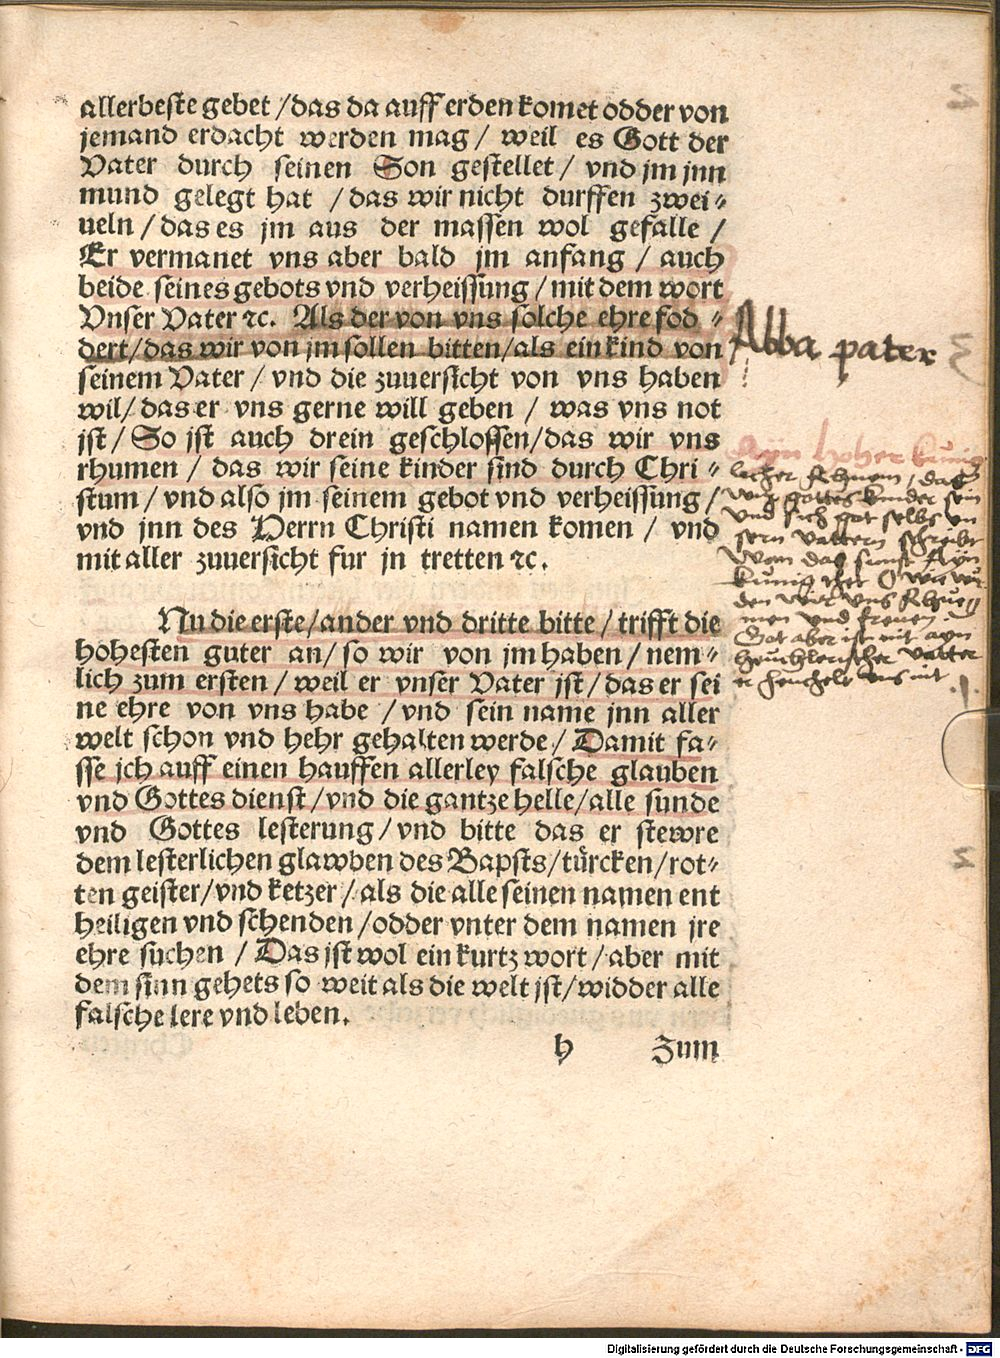 allerbeste gebet / das da auff erden komet odder von
jemand erdacht werden mag / weil es Gott der
Vater durch seinen Son gestellet / vnd jm jnn
mund gelegt hat / das wir nicht durffen zwei⸗
ueln / das es jm aus der massen wol gefalle /
Er vermanet vns aber bald jm anfang / auch
beide seines gebots vnd verheissung / mit dem wort
Vnser Vater ꝛc. Als der von vns solche ehre fod⸗
dert / das wir von jm sollen bitten / als ein kind von
seinem Vater / vnd die zuuersicht von vns haben
wil / das er vns gerne will geben / was vns not
jst / So jst auch drein geschlossen / das wir vns
rhumen / das wir seine kinder sind durch Chri⸗
stum / vnd also jm seinem gebot vnd verheissung /
vnd jnn des Herrn Christi namen komen / vnd
mit aller zuuersicht fur jn tretten ꝛc.
Nu die erste / ander vnd dritte bitte / trifft die
hohesten guter an / so wir von jm haben / nem⸗
lich zum ersten / weil er vnser Vater jst / das er sei
ne ehre von vns habe / vnd sein name jnn aller
welt schon vnd hehr gehalten werde / Damit fa⸗
sse jch auff einen hauffen allerley falsche glauben
vnd Gottes dienst / vnd die gantze helle / alle sunde
vnd Gottes lesterung / vnd bitte das er stewre
dem lesterlichen glawben des Bapsts / türcken / rot⸗
ten geister / vnd ketzer / als die alle seinen namen ent
heiligen vnd schenden / odder vnter dem namen jre
ehre suchen / Das jst wol ein kurtz wort / aber mit
dem sinn gehets so weit als die welt jst / widder alle
falsche lere vnd leben.
h Zum
Abba pater
Ayn hoher kunig
licher Rhuem / das
wir gottes kinder sein
vnd sich got selbs vn
sern vattern schreibt
Wem das sunst Ayn
kunig thet O wie wur
den wir vns Rhue⸗
men vnd freuen.
Got aber ist nit ayn
heuchlerischer vatter
er heuchelt vns nit
Digitalisierung gefördert durch die Deutsche Forschungsgemeinschaft - DFG